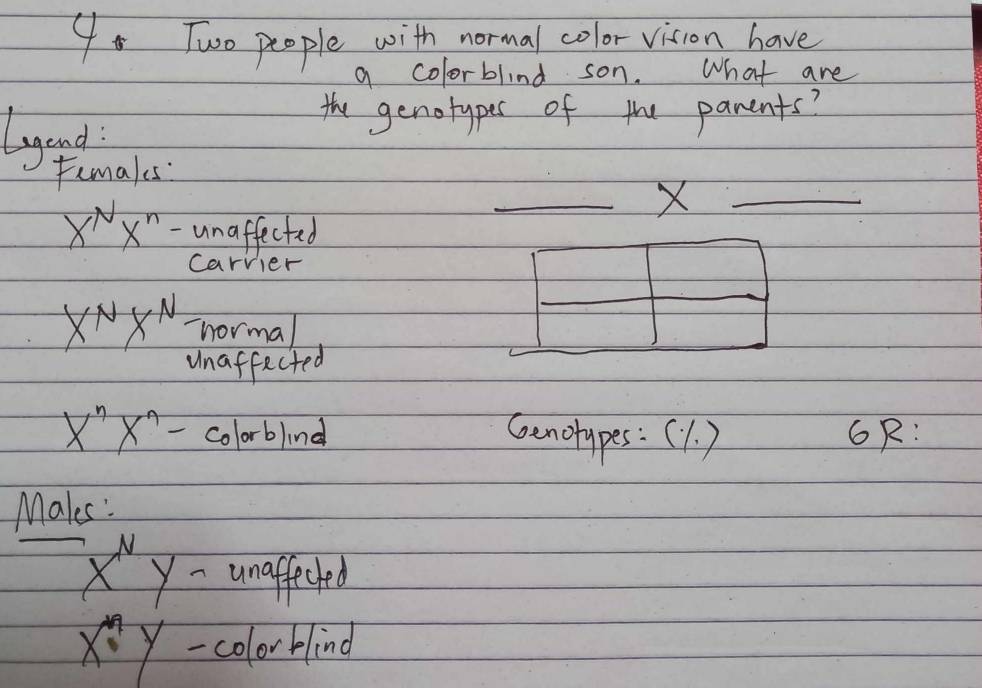 4. Two people with normal color vision have
a colorblind son. What are
the genotypes of the parents?
Legend:
Females:
X^N X^n - unaffected
carrier
X^N X^N - normal
unaffected
X^n X^n - colorblind
Males:
X^N Y - unaffected
X^n Y - colorblind
____ X ____
Genotypes: (%) GR: